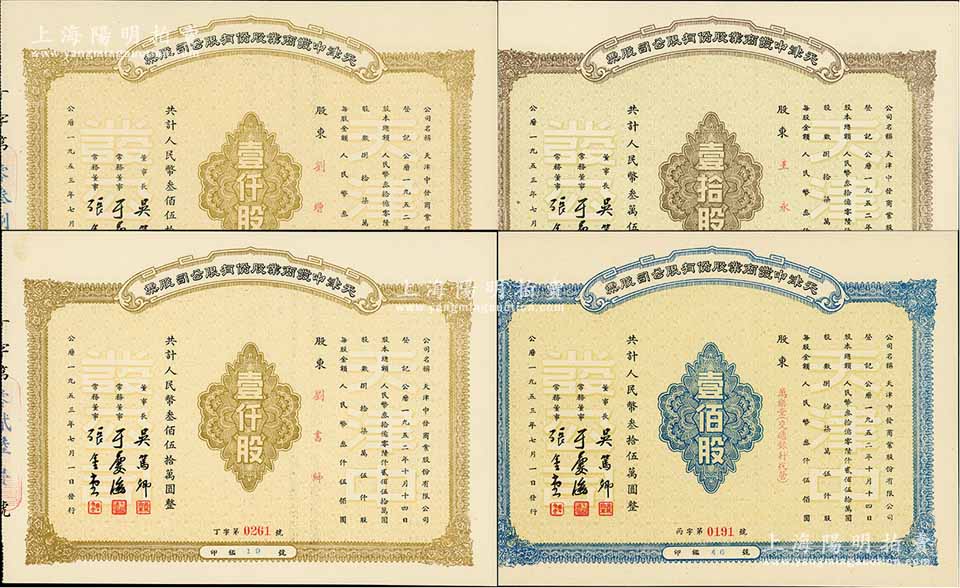 上海陽明拍賣
www.yangmingauction.com
天津中發商業股份有限公司股票
公司名稱 天津中發商業股
登記 公曆一九五二年
股本總額 人民幣叁拾億零陸
股數 捌拾柒萬
每股金額 人民幣叁
股東 劉增
壹仟股
共計人民幣叁佰伍
董事長 吳
常務董事 于
常務董事 張
公曆一九五三年七月
天津中發商業股份有限公司股票
公司名稱 天津中發商業股
登記 公曆一九五二年
股本總額 人民幣叁拾億零陸
股數 捌拾柒萬
每股金額 人民幣叁
股東 王永
壹拾股
共計人民幣叁萬伍
董事長 吳
常務董事 于
常務董事 張
公曆一九五三年七月
天津中發商業股份有限公司股票
公司名稱 天津中發商業股份有限公司
登記 公曆一九五二年十月十四日
股本總額 人民幣叁拾億零陸仟貳佰伍拾萬圓
股數 捌拾柒萬伍仟股
每股金額 人民幣叁仟伍佰圓
股東 劉書紳
壹仟股
共計人民幣叁佰伍拾萬圓整
董事長 吳篤卿
常務董事 于慶海
常務董事 張
公曆一九五三年七月一日發行
丁字第0261號
印鑑 19 號
天津中發商業股份有限公司股票
公司名稱 天津中發商業股份有限公司
登記 公曆一九五二年十月十四日
股本總額 人民幣叁拾億零陸仟貳佰伍拾萬圓
股數 捌拾柒萬伍仟股
每股金額 人民幣叁仟伍佰圓
股東
壹佰股
共計人民幣叁拾伍萬圓整
董事長 吳篤卿
常務董事 于慶海
常務董事 張
公曆一九五三年七月一日發行
丙字第0191號
印鑑 46 號
上海陽明拍賣
www.yangmingauction.com